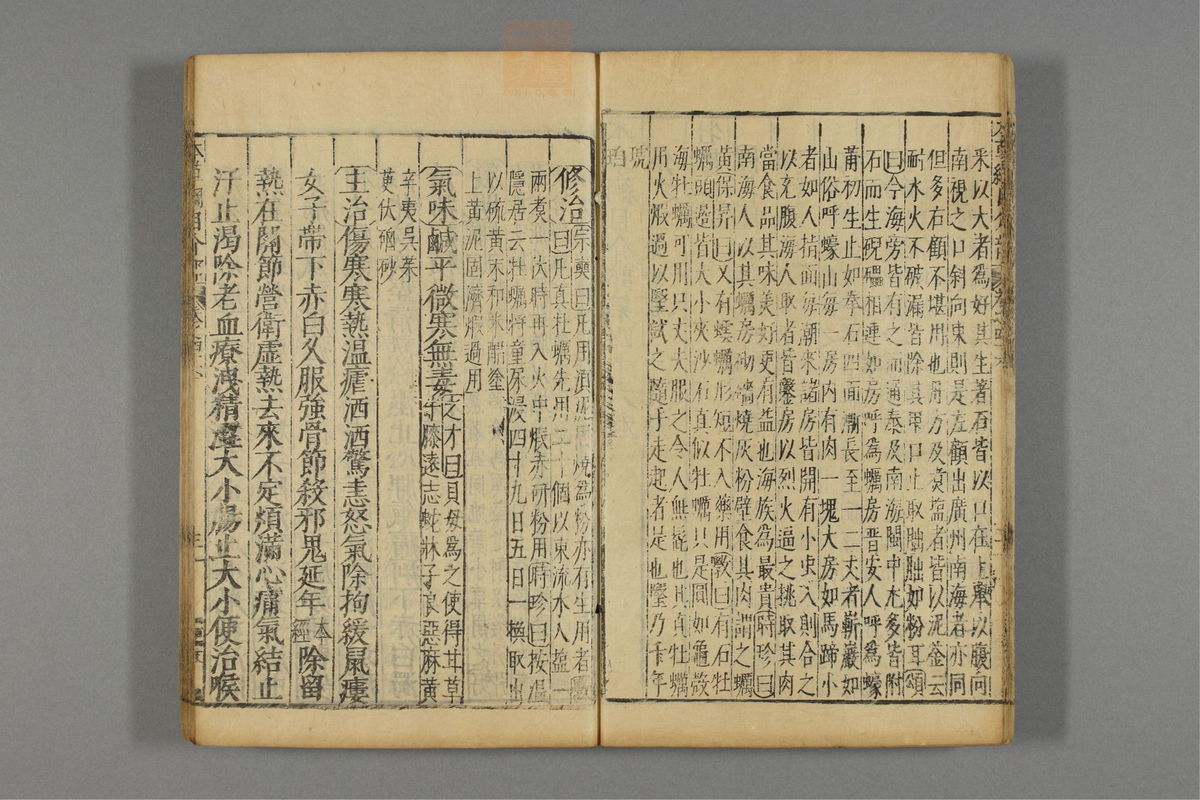 采以大者為好其生著石皆以口在上舉以腹向
南視之口斜向東則是左顧出廣州南海者亦同
但多右顧不堪用也丹方及煑塩者皆以泥釜云
耐水火不破漏皆除其甲口止取朏朏如粉耳頌
曰今海旁皆有之而通泰及南海閩中尤多皆附
石而生磈礧相連如房呼為蠣房晋安人呼為蠔
莆初生止如拳石四面漸長至一二丈者嶄巖如
山俗呼蠔山每一房内有肉一塊大房如馬蹄小
者如人指面每潮來諸房皆開有小虫入則合之
以充腹海人取者皆鑿房以烈火逼之挑取其肉
當食品其味美好更有益也海族為最貴時珍曰
南海人以其蠣房砌墻燒灰粉壁食其肉謂之蠣
黄保昇曰又有𧑅蠣形短不入藥用斆曰有石牡
蠣頭邊皆大小夾沙石真似牡蠣只是圓如龜殻
海牡蠣可用只丈夫服之令人無髭也其真牡蠣
用火煆過以𤫩試之隨手走起者是也𤫩乃千年
琥珀
修治宗奭曰凡用須泥用燒為粉亦有生用者斆
曰凡真牡蠣先用二十個以東流水入盐一
兩煑一伏時再入火中煅赤研粉用時珍曰按温
隱居云牡蠣將童尿浸四十九日五日一換取出
以硫黄末和米醋塗
上黄泥固濟煆過用
氣味鹹平微寒無毒之才曰貝母為之使得甘草
牛膝遠志蛇牀子良惡麻黄
辛夷吳茱
萸伏硇砂
主治傷寒寒熱温瘧洒洒驚恚怒氣除拘緩鼠瘻
女子帶下赤白久服強骨節殺邪鬼延年本經除留
熱在關節營衛虛熱去來不定煩滿心痛氣結止
汗止渴除老血療洩精澀大小腸止大小便治喉